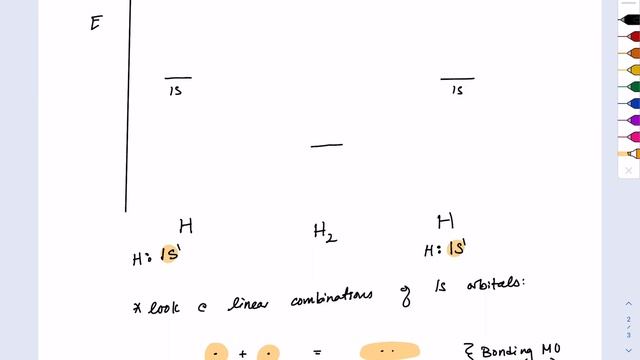 E
1s 1s
H H₂ H
H: 1s¹ H: 1s¹
* look @ linear combinations of 1s orbitals:
+ = { Bonding MO
2
/
3